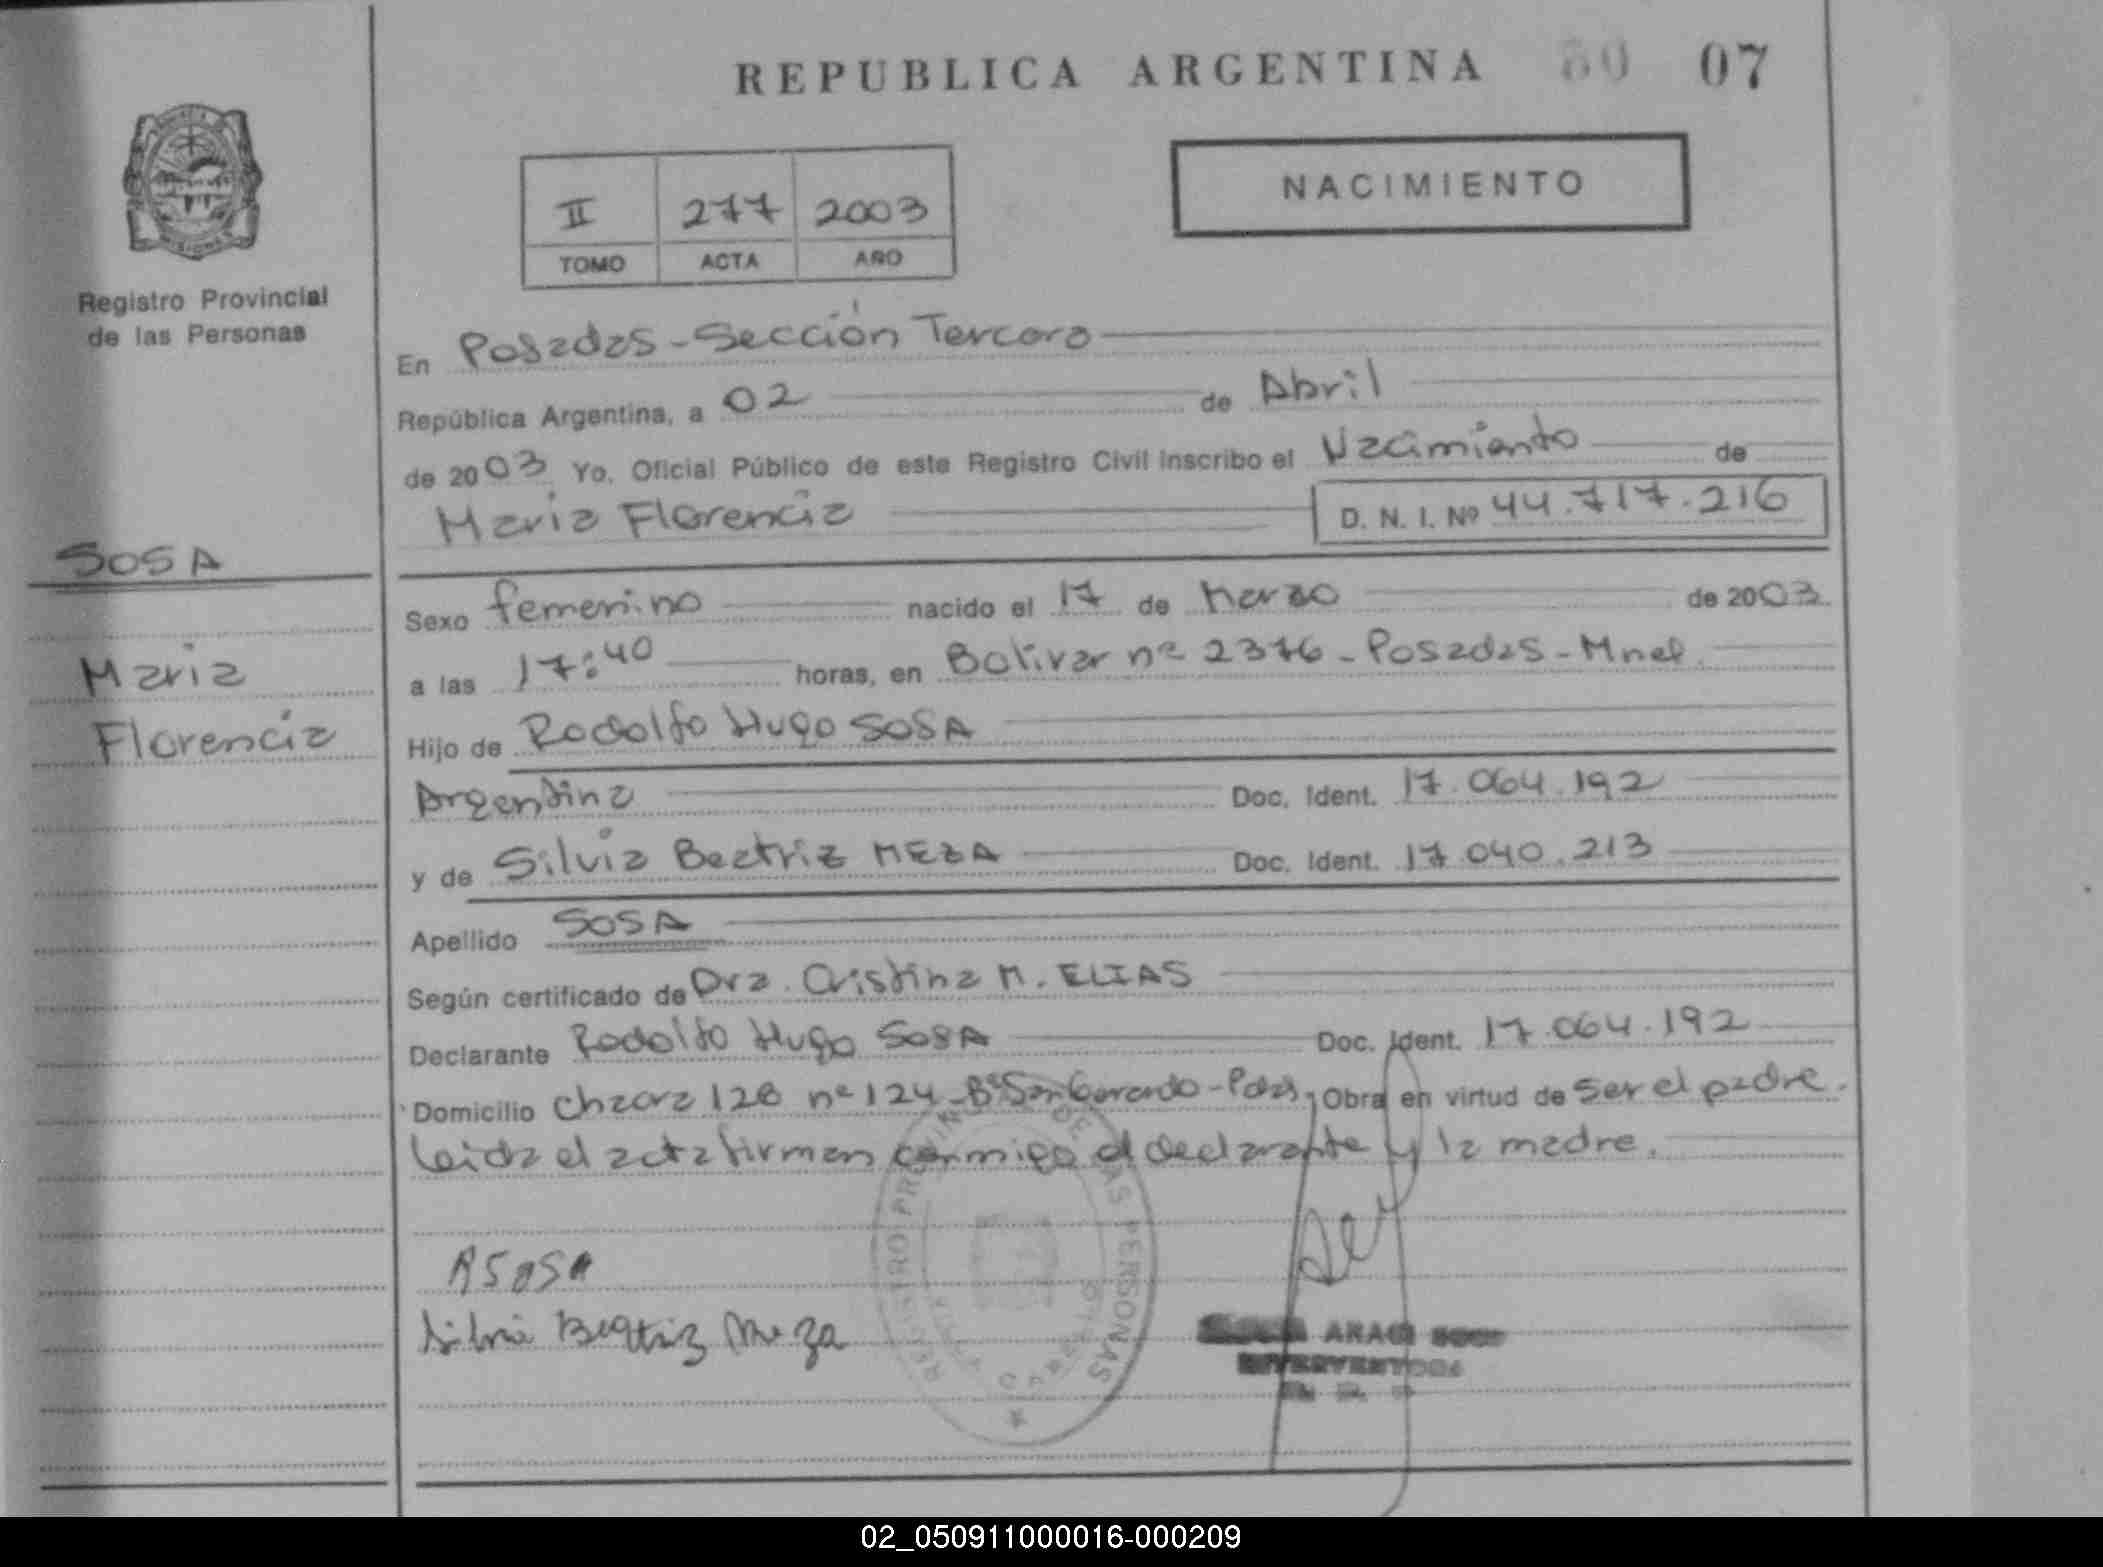 REPUBLICA ARGENTINA 07
NACIMIENTO
II 277 2003
TOMO ACTA AÑO
Registro Provincial
de las Personas
En Posadas - Sección Tercera
República Argentina, a 02 de Abril
de 2003 Yo, Oficial Público de este Registro Civil inscribo el Nacimiento de
Maria Florencia D. N. I. Nº 44.717.216
SOSA
Maria
Florencia
Sexo femenino nacido el 17 de Marzo de 2003
a las 17:40 horas, en Bolivar nº 2376 - Posadas - Mnes.
Hijo de Rodolfo Hugo SOSA
Argentina Doc. Ident. 17.064.192
y de Silvia Beatriz MEZA Doc. Ident. 17.040.213
Apellido SOSA
Según certificado de Dra. Cristina M. ELIAS
Declarante Rodolfo Hugo SOSA Doc. Ident. 17.064.192
Domicilio Chacra 128 nº 124 - Bº San Gerardo - Pdas, Obra en virtud de ser el padre.
Leida el acta firman conmigo el declarante y la madre.
R SOSA
Silvia Beatriz Meza
REGISTRO PROVINCIAL DE LAS PERSONAS
INTERVENTORA
02_050911000016-000209